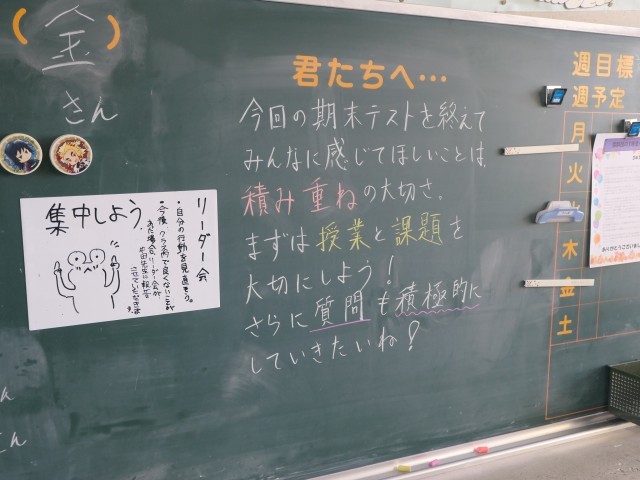 (金)
さん
君たちへ…
今回の期末テストを終えて
みんなに感じてほしいことは、
積み重ねの大切さ。
まずは授業と課題を
大切にしよう！
さらに質問も積極的に
していきたいね！
集中しよう。
リーダー会
・自分の行動を見直そう。
・今後、クラス内で良くないことが
あた場合、リーダー会が
させていただきます。
週目標
週予定
月
火
水
木
金
土